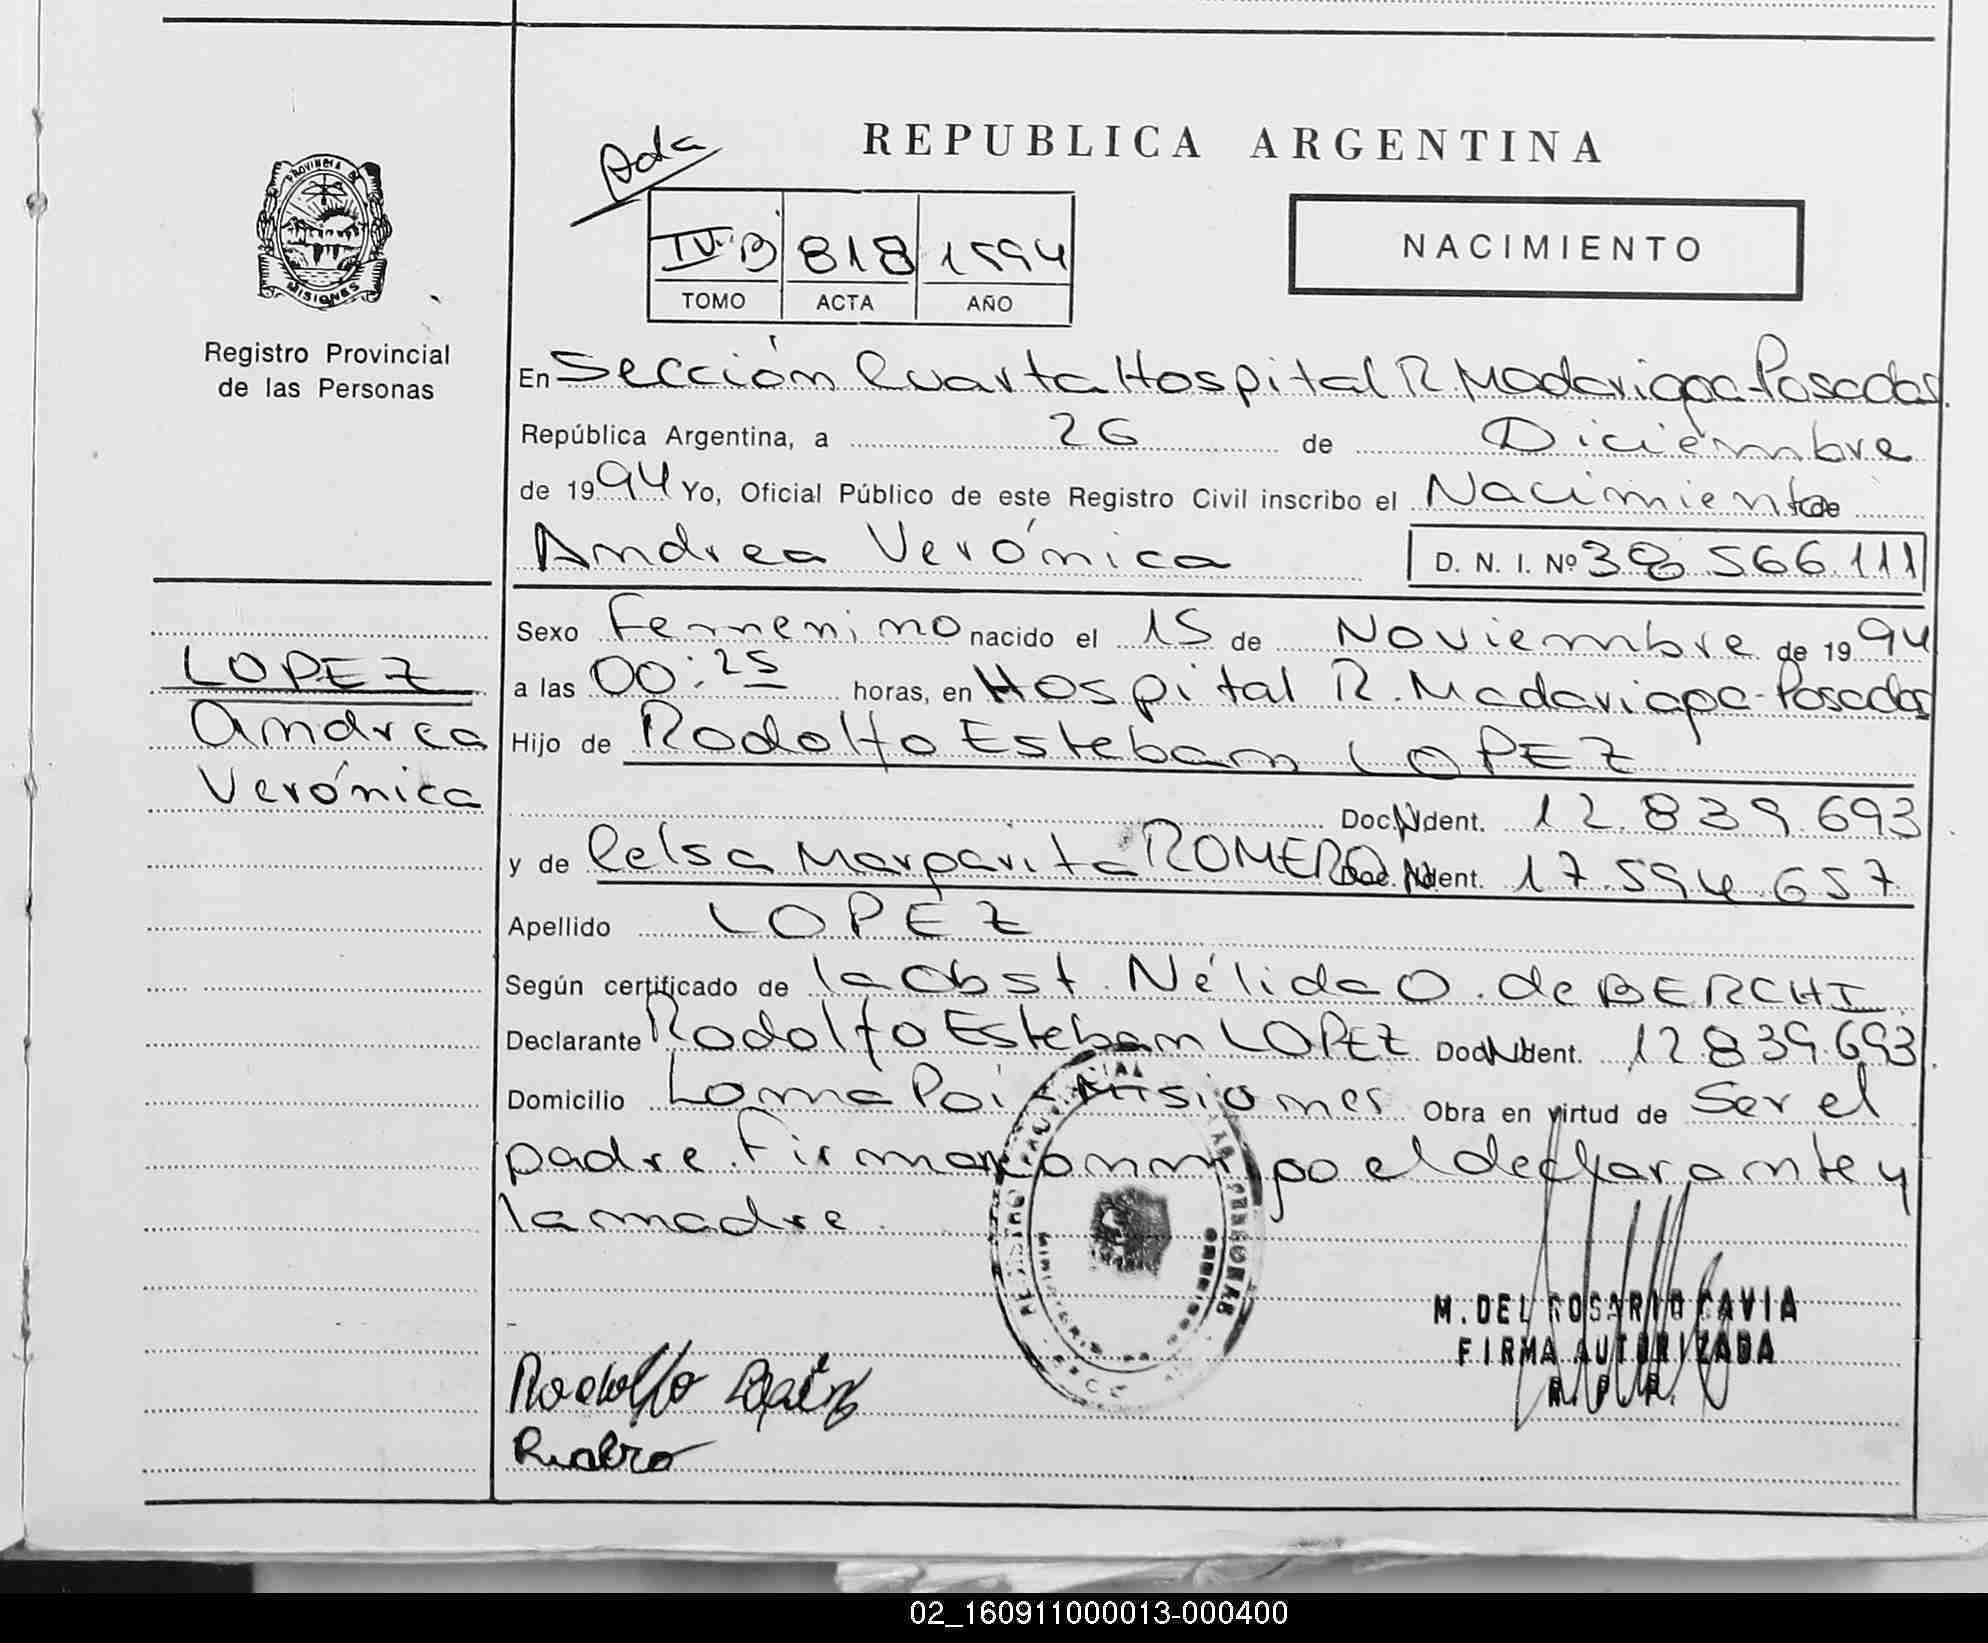 REPUBLICA ARGENTINA
Ada
IV.B 818 1994
TOMO ACTA AÑO
NACIMIENTO
PROVINCIA DE
MISIONES
Registro Provincial
de las Personas
En Sección Cuarta Hospital R. Madariaga-Posadas.
República Argentina, a 26 de Diciembre
de 1994 Yo, Oficial Público de este Registro Civil inscribo el Nacimiento de
Andrea Verónica D. N. I. Nº 38.566.111
Sexo Femenino nacido el 15 de Noviembre de 1994
a las 00:25 horas, en Hospital R. Madariaga-Posadas
Hijo de Rodolfo Esteban LOPEZ
Doc. Ident. 12.839.693
y de Celsa Margarita ROMERO Doc. Ident. 17.594.657
Apellido LOPEZ
Según certificado de la Obst. Nélida O. de BERCHI
Declarante Rodolfo Esteban LOPEZ Doc. Ident. 12.839.693.
Domicilio Loma Poi-Misiones Obra en virtud de Ser el
padre. Firman conmigo el declarante y
la madre.
LOPEZ
Andrea
Verónica
M. DEL ROSARIO CAVIA
FIRMA AUTORIZADA
R. P. P.
Rodolfo
02_160911000013-000400